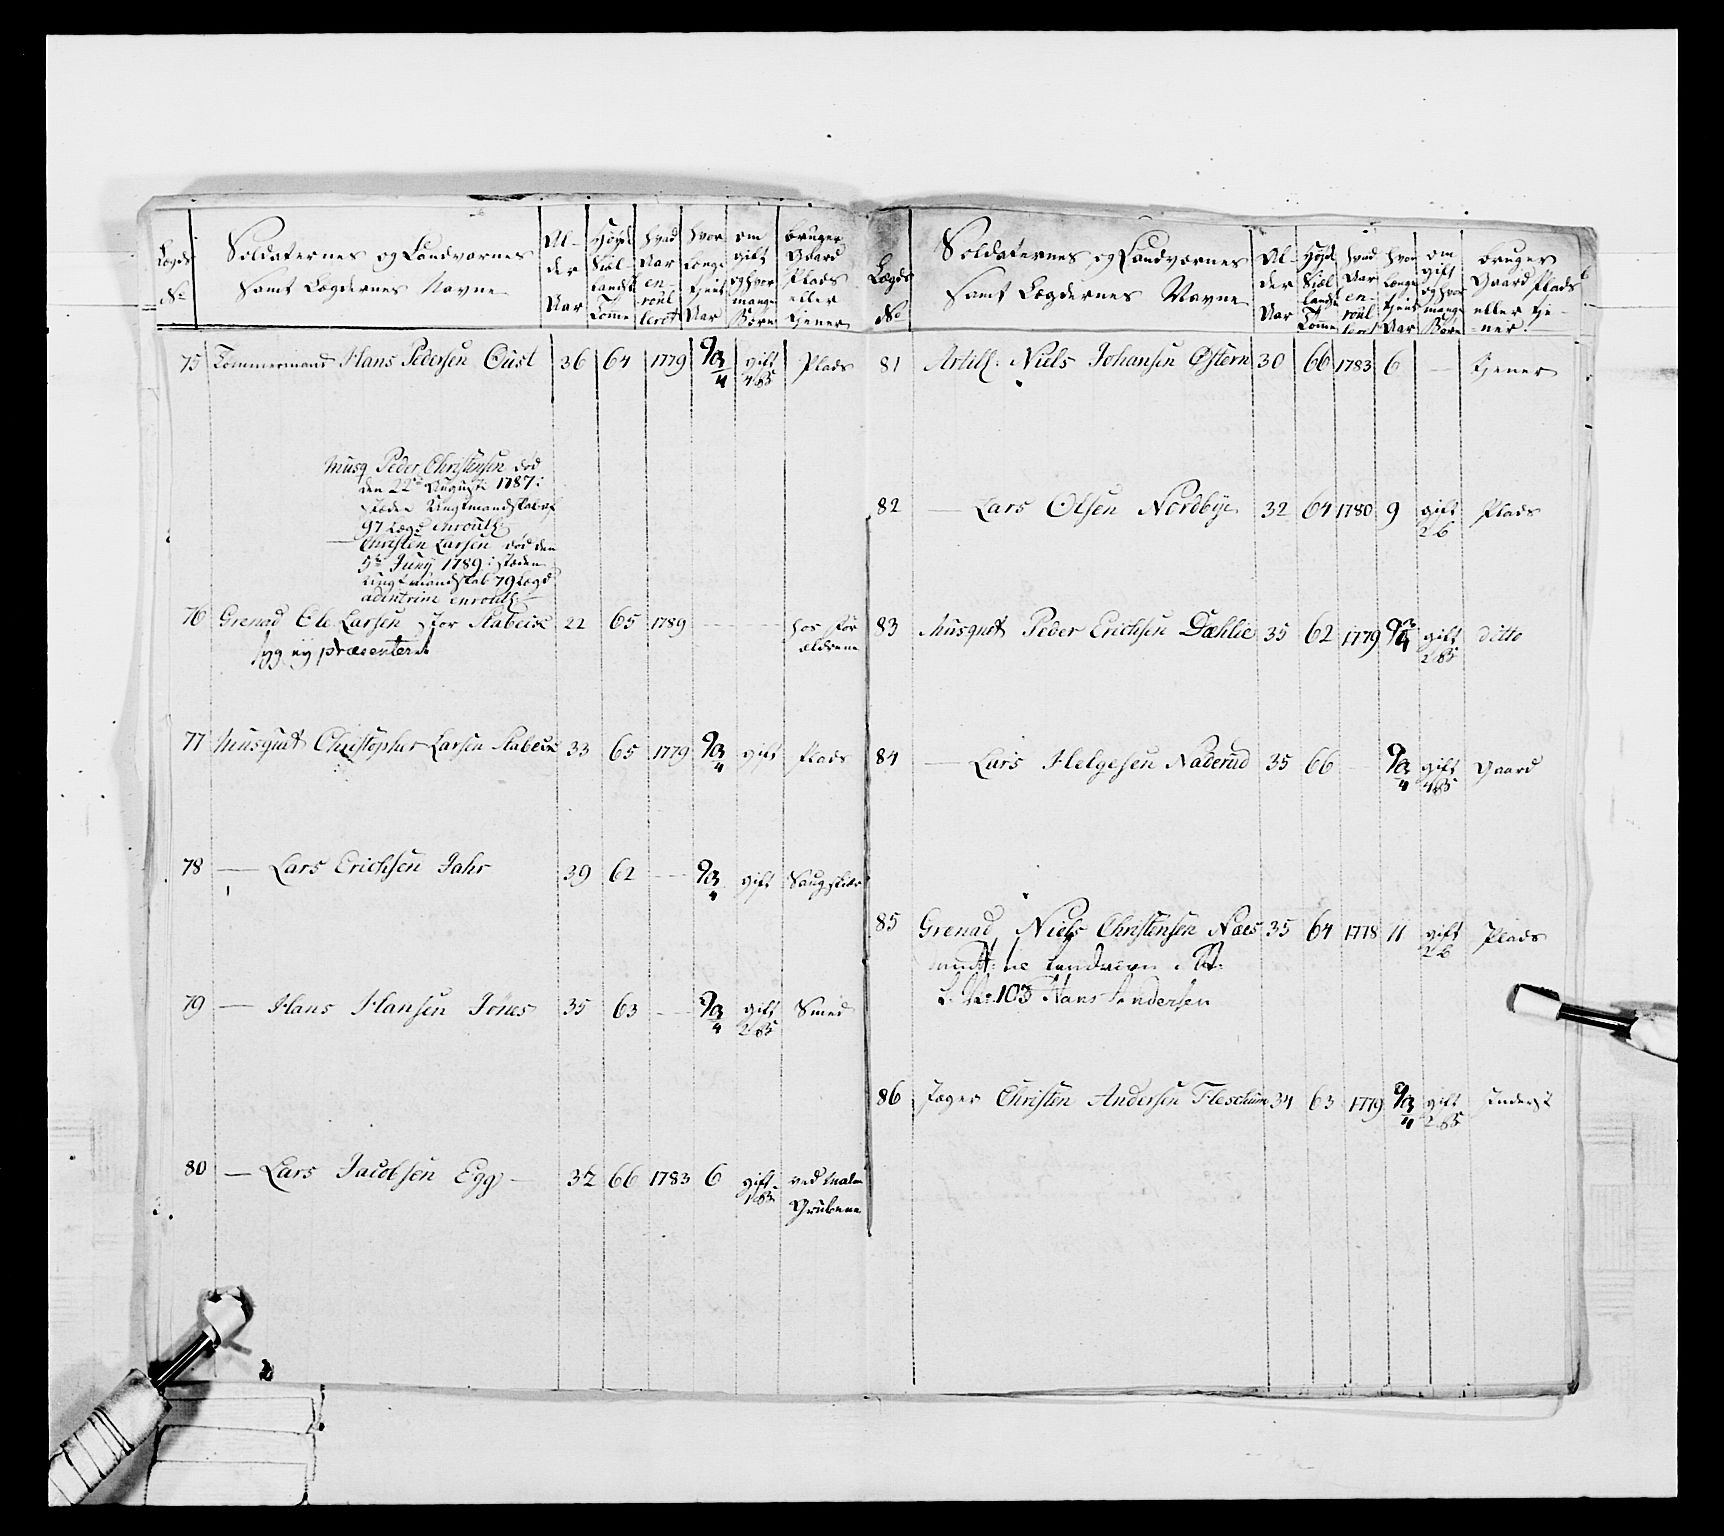 Lægds No
Soldaternes og Landværnes samt Lægdernes Navne
Al-der Aar
Høyde Siællandsk Tomme
hvad Aar en-roul leret
hvor længe tient Aar
om gift og hvor mange Børn
bruger Gaard Plads eller tjener
75 Tømmermand Hans Pedersen Oust 36 64 1779 9 3/4 gift 4 B Plads
Musq. Peder Christensen død
den 22de Augusti 1787:
97 Lægd enroull:
— Christen Larsen død den
5te Junij 1789: Steden
Ungt mandskab 79 Lægd
enroull:
76 Grenad Ole Larsen Stor Stabeck 22 65 1789 — — hos for
ældrene
syg ej præsenteret
77 Musquet Christopher Larsen Stabeck 33 65 1779 9 3/4 gift Plads
78 — Lars Erichsen Jahr 39 62 — 9 3/4 gift Saugskiær
79 — Hans Hansen Jones 35 63 — 9 3/4 gift 2 B Smed
80 — Lars Jacobsen Egg — 32 66 1783 6 gift 1 B ved Malm
Grubene
Lægds No
Soldaternes og Landværnes samt Lægdernes Navne
Al-der Aar
Høyde Siællandsk Tomme
hvad Aar en-roul leret
hvor længe tient Aar
om gift og hvor mange Børn
bruger Gaard Plads eller tje-ner
81 Artill: Niels Johansen Østern 30 66 1783 6 — tjener
82 — Lars Olsen Nordbye 32 64 1780 9 gift 2 B Plads
83 Musquet Peder Erichsen Dæhlie 35 62 1779 9 3/4 gift 2 B ditto
84 — Lars Helgesen Naderud 35 66 — 9 3/4 gift 4 B Gaard
85 Grenad Niels Christensen Næss 35 64 1778 11 gift 2 B Plads
L: No: 103 Hans Andersen
86 Jæger Christen Andersen Fleschum 34 63 1779 9 3/4 gift 2 B Inderst